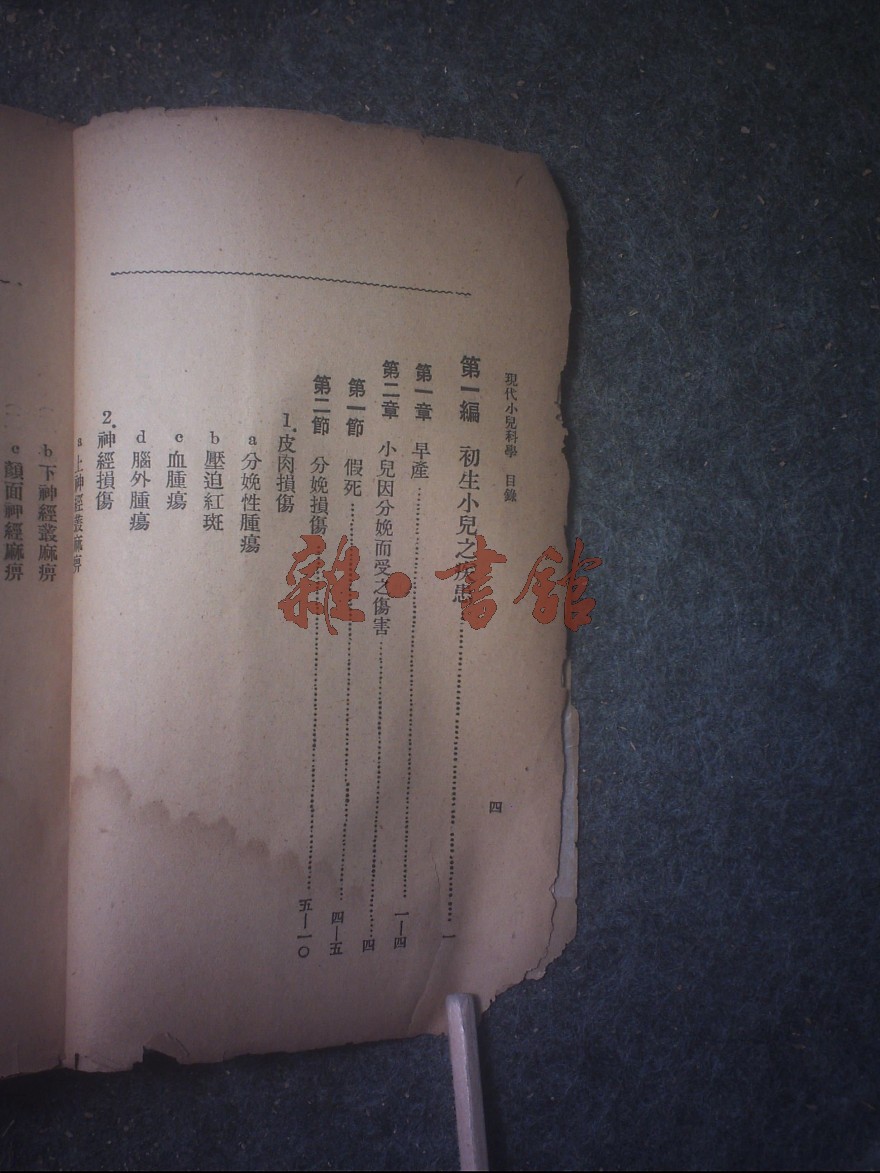 現代小兒科學　目錄
四
第一編　初生小兒之疾患…………一
第一章　早產…………一—四
第二章　小兒因分娩而受之傷害…………四
第一節　假死…………四—五
第二節　分娩損傷…………五—一〇
1.皮肉損傷
a 分娩性腫瘍
b 壓迫紅斑
c 血腫瘍
d 腦外腫瘍
2.神經損傷
a 上神經叢麻痹
b 下神經叢麻痹
c 顏面神經麻痹
雜·書館